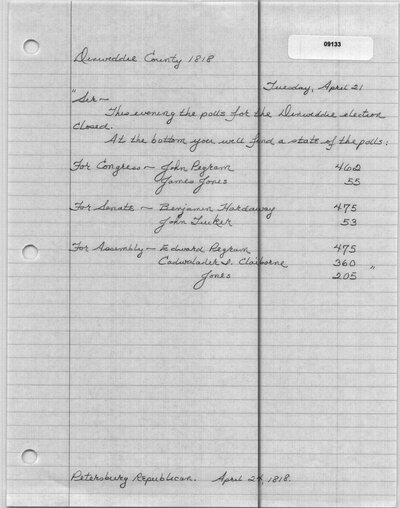 09133
Dinwiddie County 1818
Tuesday, April 21
"Sir~
This evening the polls for the Dinwiddie election
closed.
At the bottom you will find a state of the polls:
For Congress ~ John Pegram 462
James Jones 55
For Senate ~ Benjamin Hardaway 475
John Tucker 53
For Assembly ~ Edward Pegram 475
Cadwalader J. Claiborne 360 "
Jones 205
Petersburg Republican. April 24, 1818.